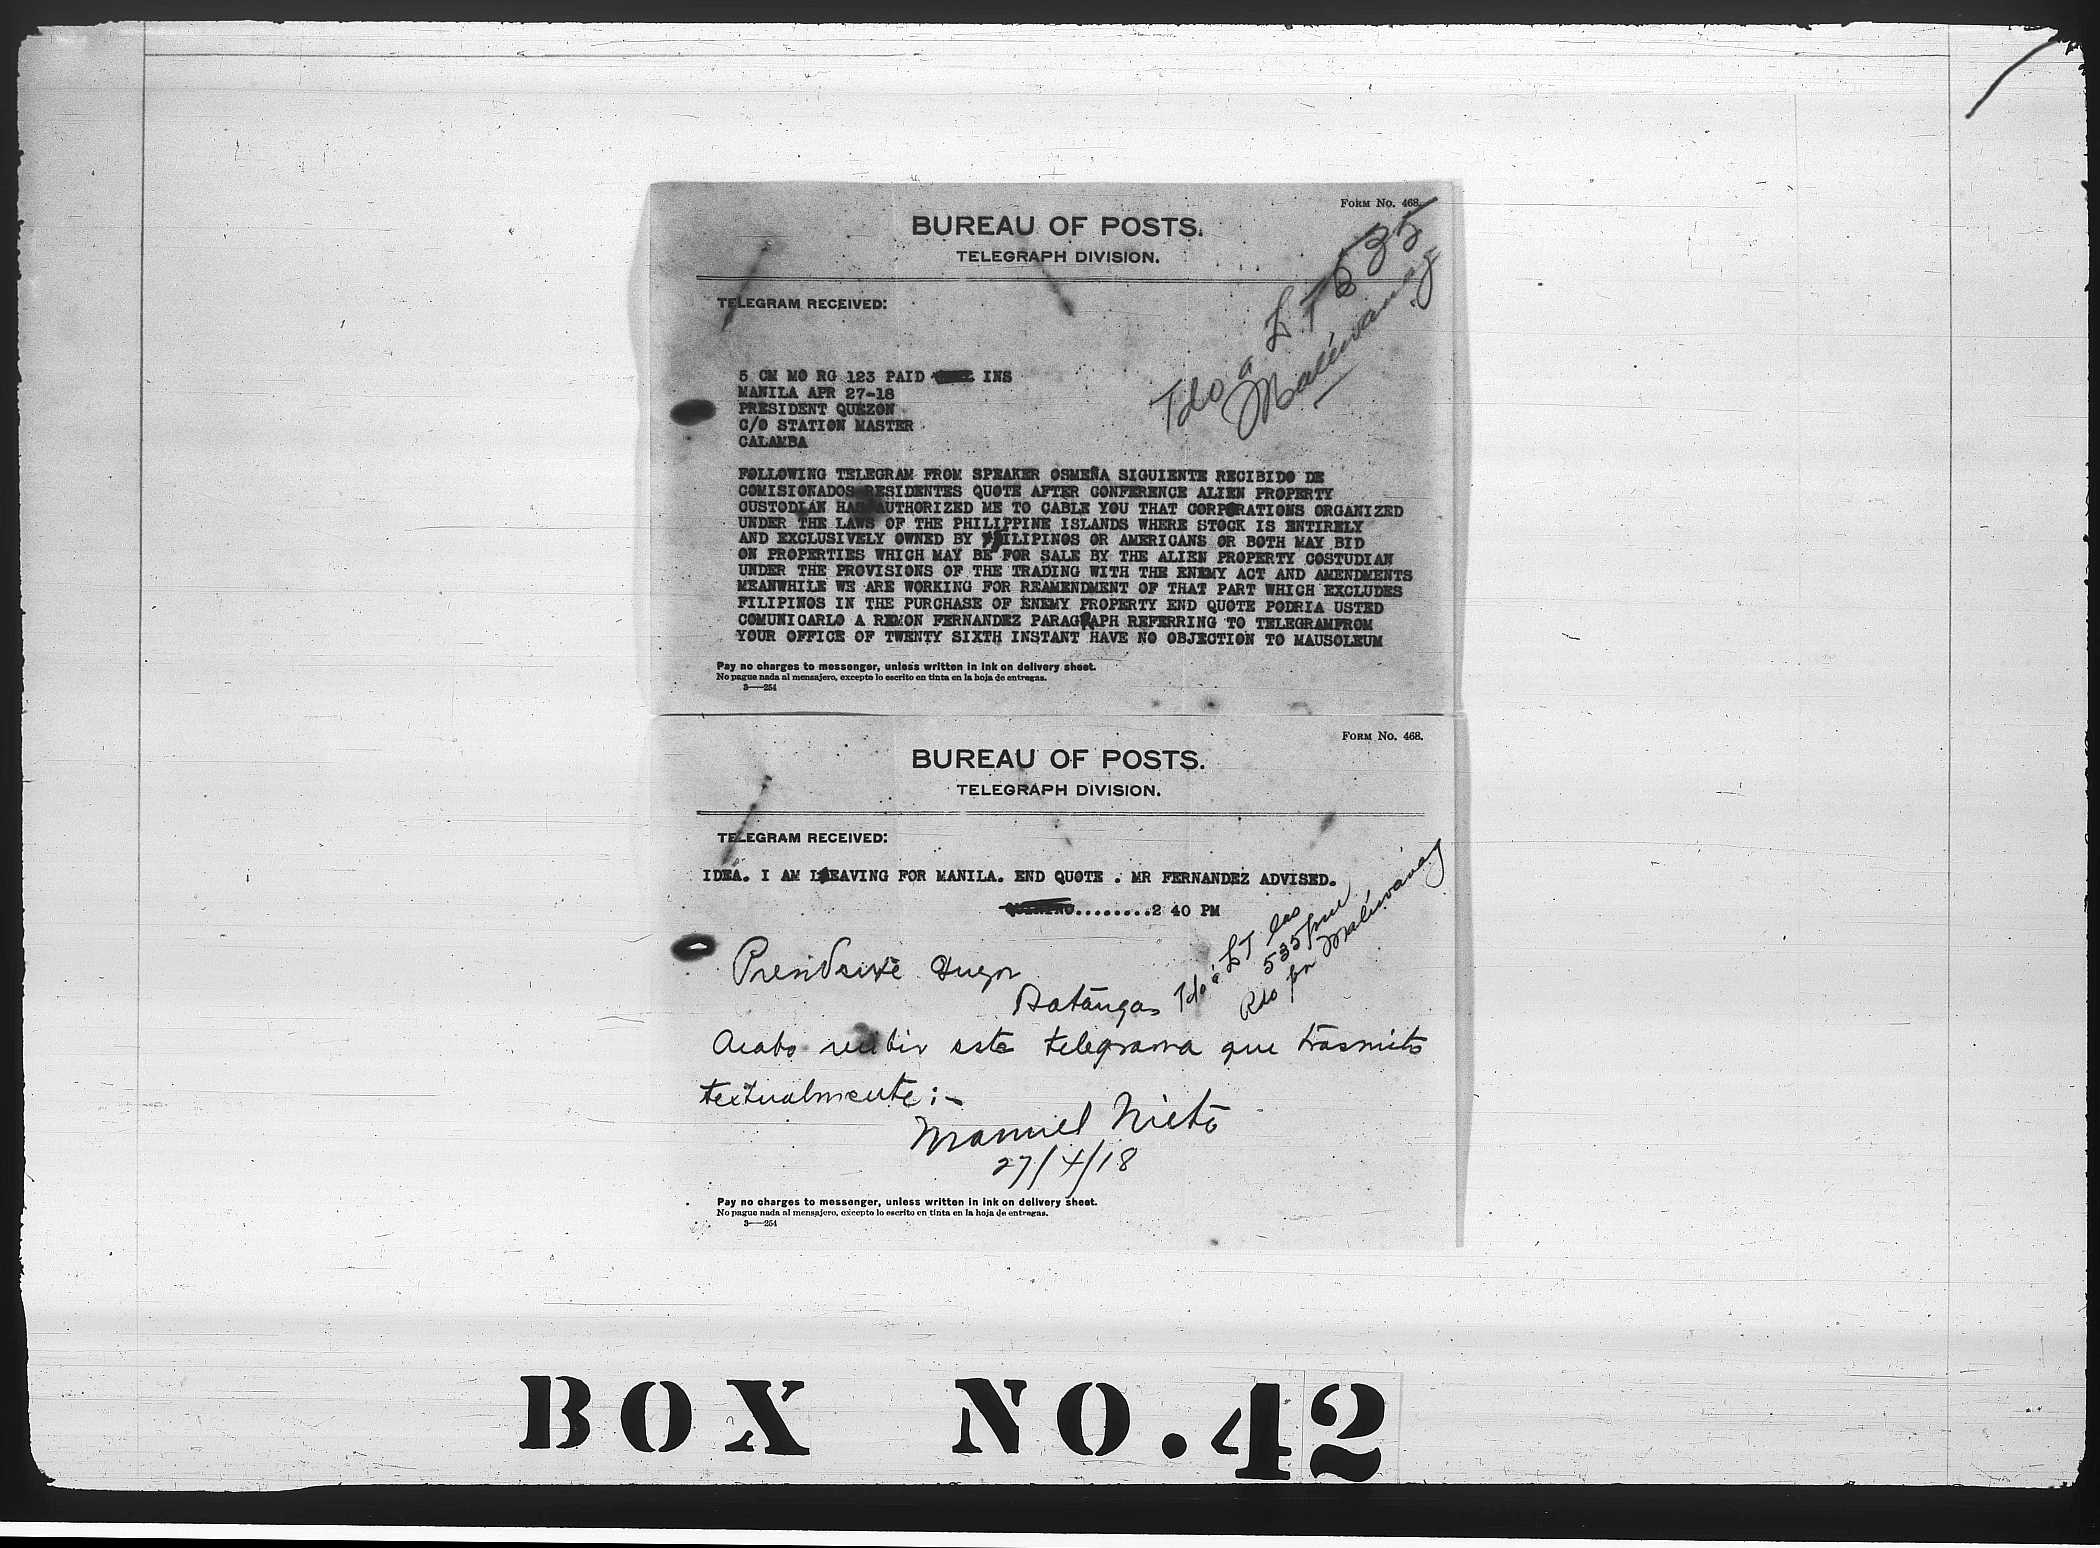 FORM NO. 468.
BUREAU OF POSTS.
TELEGRAPH DIVISION.
TELEGRAM RECEIVED:
Tdo a LT 535
Maliwanag
5 CM MO RG 123 PAID INS
MANILA APR 27-18
PRESIDENT QUEZON
C/O STATION MASTER
CALAMBA
FOLLOWING TELEGRAM FROM SPEAKER OSMEÑA SIGUIENTE RECIBIDO DE
COMISIONADOS RESIDENTES QUOTE AFTER CONFERENCE ALIEN PROPERTY
CUSTODIAN HAS AUTHORIZED ME TO CABLE YOU THAT CORPORATIONS ORGANIZED
UNDER THE LAWS OF THE PHILIPPINE ISLANDS WHERE STOCK IS ENTIRELY
AND EXCLUSIVELY OWNED BY FILIPINOS OR AMERICANS OR BOTH MAY BID
ON PROPERTIES WHICH MAY BE FOR SALE BY THE ALIEN PROPERTY COSTUDIAN
UNDER THE PROVISIONS OF THE TRADING WITH THE ENEMY ACT AND AMENDMENTS
MEANWHILE WE ARE WORKING FOR REAMENDMENT OF THAT PART WHICH EXCLUDES
FILIPINOS IN THE PURCHASE OF ENEMY PROPERTY END QUOTE PODRIA USTED
COMUNICARLO A REMON FERNANDEZ PARAGRAPH REFERRING TO TELEGRAMFROM
YOUR OFFICE OF TWENTY SIXTH INSTANT HAVE NO OBJECTION TO MAUSOLEUM
Pay no charges to messenger, unless written in ink on delivery sheet.
No pague nada al mensajero, excepto lo escrito en tinta en la hoja de entregas.
3—254
FORM NO. 468.
BUREAU OF POSTS.
TELEGRAPH DIVISION.
TELEGRAM RECEIVED:
IDEA. I AM LEAVING FOR MANILA. END QUOTE . MR FERNANDEZ ADVISED.
........2 40 PM
Tdo a LT las
535 pm
Rdo por Maliwanag
Presidente Quezon
Batangas
Acabo recibir este telegrama que trasmito
textualmente:-
Manuel Nieto
27/4/18
Pay no charges to messenger, unless written in ink on delivery sheet.
No pague nada al mensajero, excepto lo escrito en tinta en la hoja de entregas.
3—254
BOX NO. 42